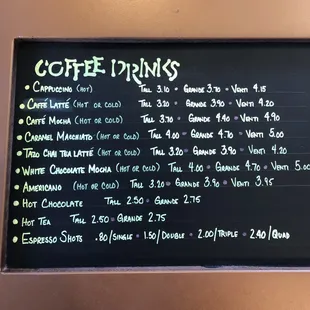 COFFEE DRINKS
• CAPPUCCINO (HOT) TALL 3.10 • GRANDE 3.70 • VENTI 4.15
• CAFFÉ LATTÉ (HOT OR COLD) TALL 3.20 • GRANDE 3.90 • VENTI 4.20
• CAFFÉ MOCHA (HOT OR COLD) TALL 3.70 • GRANDE 4.60 • VENTI 4.90
• CARAMEL MACCHIATO (HOT OR COLD) TALL 4.00 • GRANDE 4.70 • VENTI 5.00
• TAZO CHAI TEA LATTÉ (HOT OR COLD) TALL 3.20 • GRANDE 3.90 • VENTI 4.20
• WHITE CHOCOLATE MOCHA (HOT OR COLD) TALL 4.00 • GRANDE 4.70 • VENTI 5.00
• AMERICANO (HOT OR COLD) TALL 3.20 • GRANDE 3.90 • VENTI 3.95
• HOT CHOCOLATE TALL 2.50 • GRANDE 2.75
• HOT TEA TALL 2.50 • GRANDE 2.75
• ESPRESSO SHOTS .80/SINGLE • 1.50/DOUBLE • 2.00/TRIPLE • 2.40/QUAD